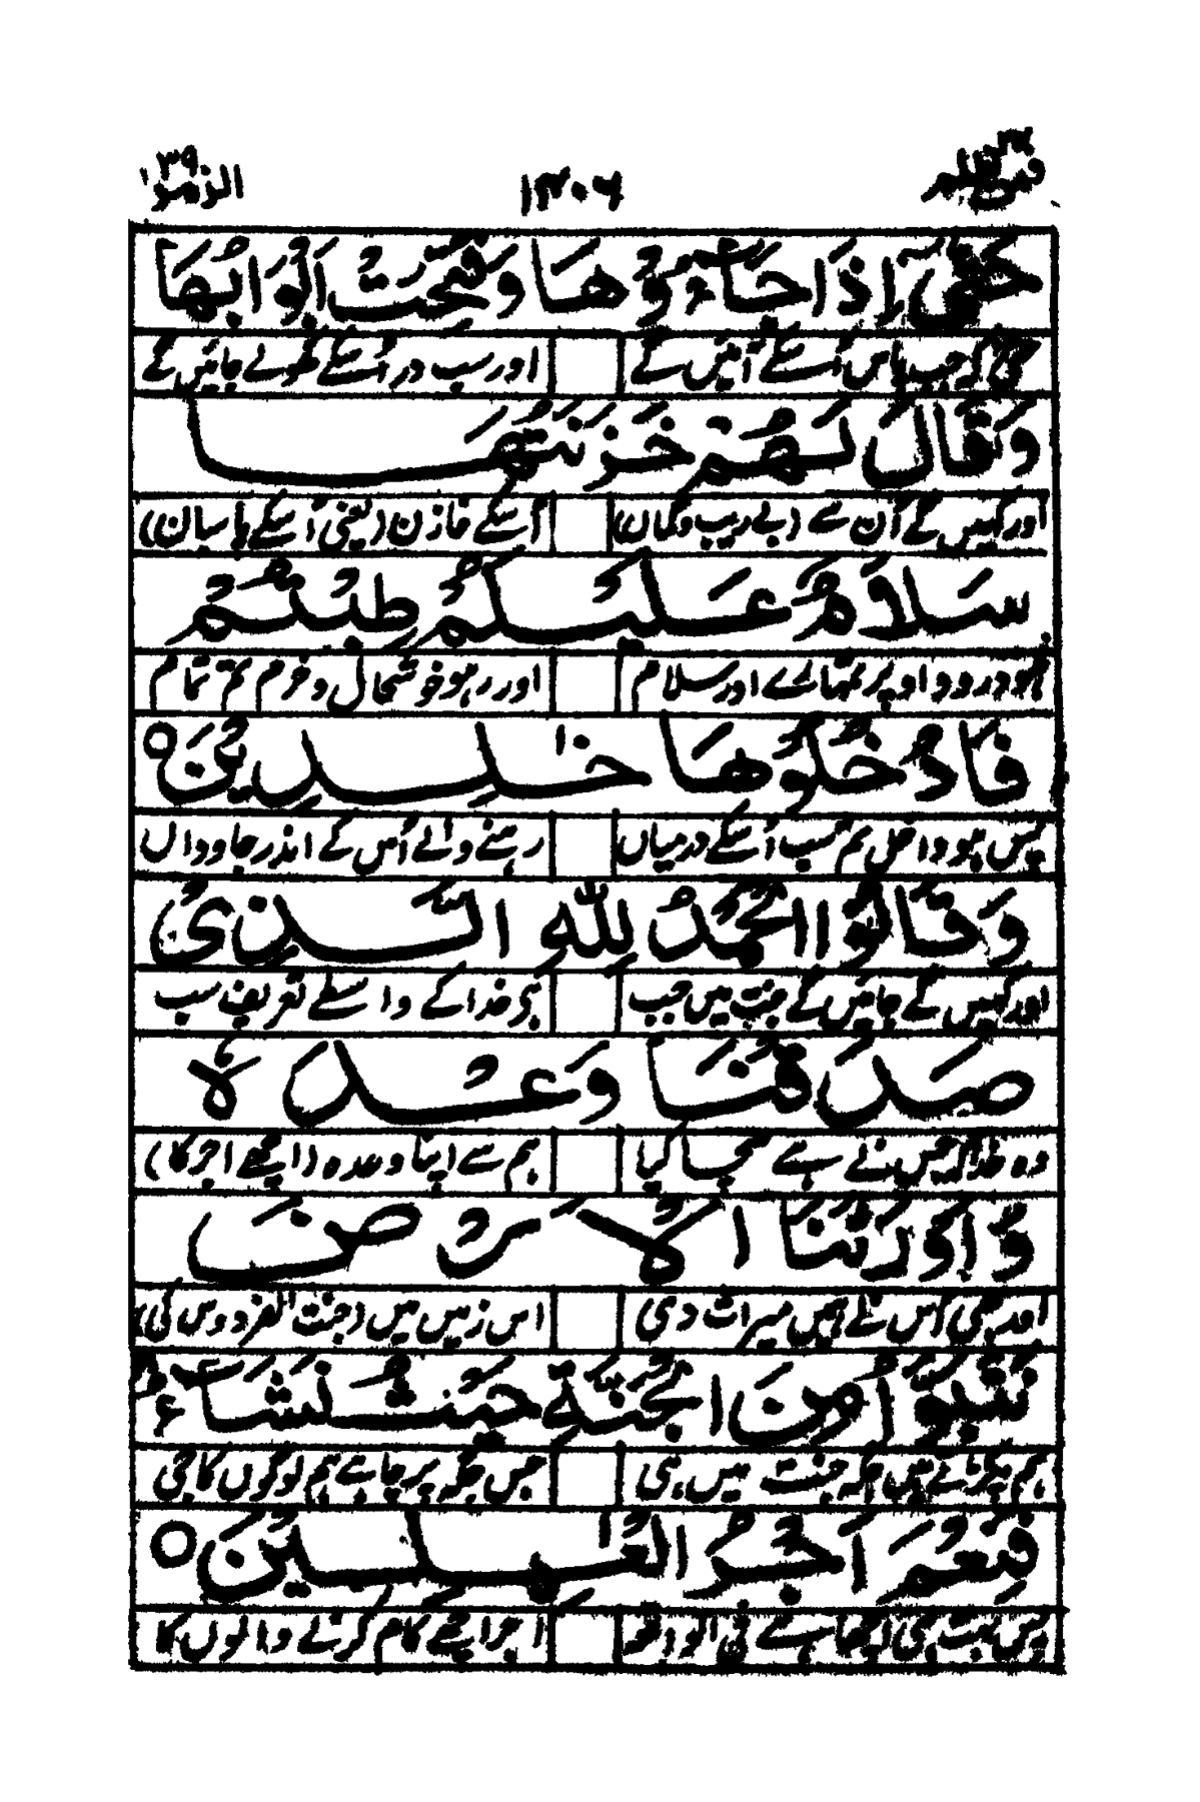 فمن اظلم ٢٤ ١٢٠٦ الزمر ٣٩
حَتّٰىٓ اِذَا جَآءُوْهَا وَفُتِحَتْ اَبْوَابُهَا
حتیٰ کہ جب پاس اُسکے آئیں گے اور سب در اُسکے کھولے جائیں گے
وَقَالَ لَهُمْ خَزَنَتُهَا
اور کہیں گے اُن سے (بے ریب و گماں) اُسکے خازن (یعنی اُسکے پاسبان)
سَلَامٌ عَلَيْكُمْ طِبْتُمْ
ہو درود اوپر تمہارے اور سلام اور رہو خوشحال و خرم تم تمام
فَادْخُلُوْهَا خٰلِدِيْنَ ○
پس ہو داخل تم سب اُسکے درمیاں رہنے والے اُس کے اندر جاوداں
وَقَالُوا الْحَمْدُ لِلّٰهِ الَّذِيْ
اور کہیں گے جائیں گے جنت میں جب ہی خدا کے واسطے تعریف سب
صَدَقَنَا وَعْدَهٗ
وہ خدا کہ جس نے ہے سچا کیا ہم سے اپنا وعدہ (اچھے اجر کا)
وَاَوْرَثَنَا الْاَرْضَ
اور بھی اُس نے ہمیں میراث دی اس زمیں میں (جنت الفردوس کی)
نَتَبَوَّاُ مِنَ الْجَنَّةِ حَيْثُ نَشَآءُ ۚ
ہم جگہ جنت میں ہی جس جگہ پر چاہے ہم لوگوں کا جی
فَنِعْمَ اَجْرُ الْعٰمِلِيْنَ ○
پس بہت ہی اچھا ہے فی الواقع اجر اچھے کام کرنے والوں کا